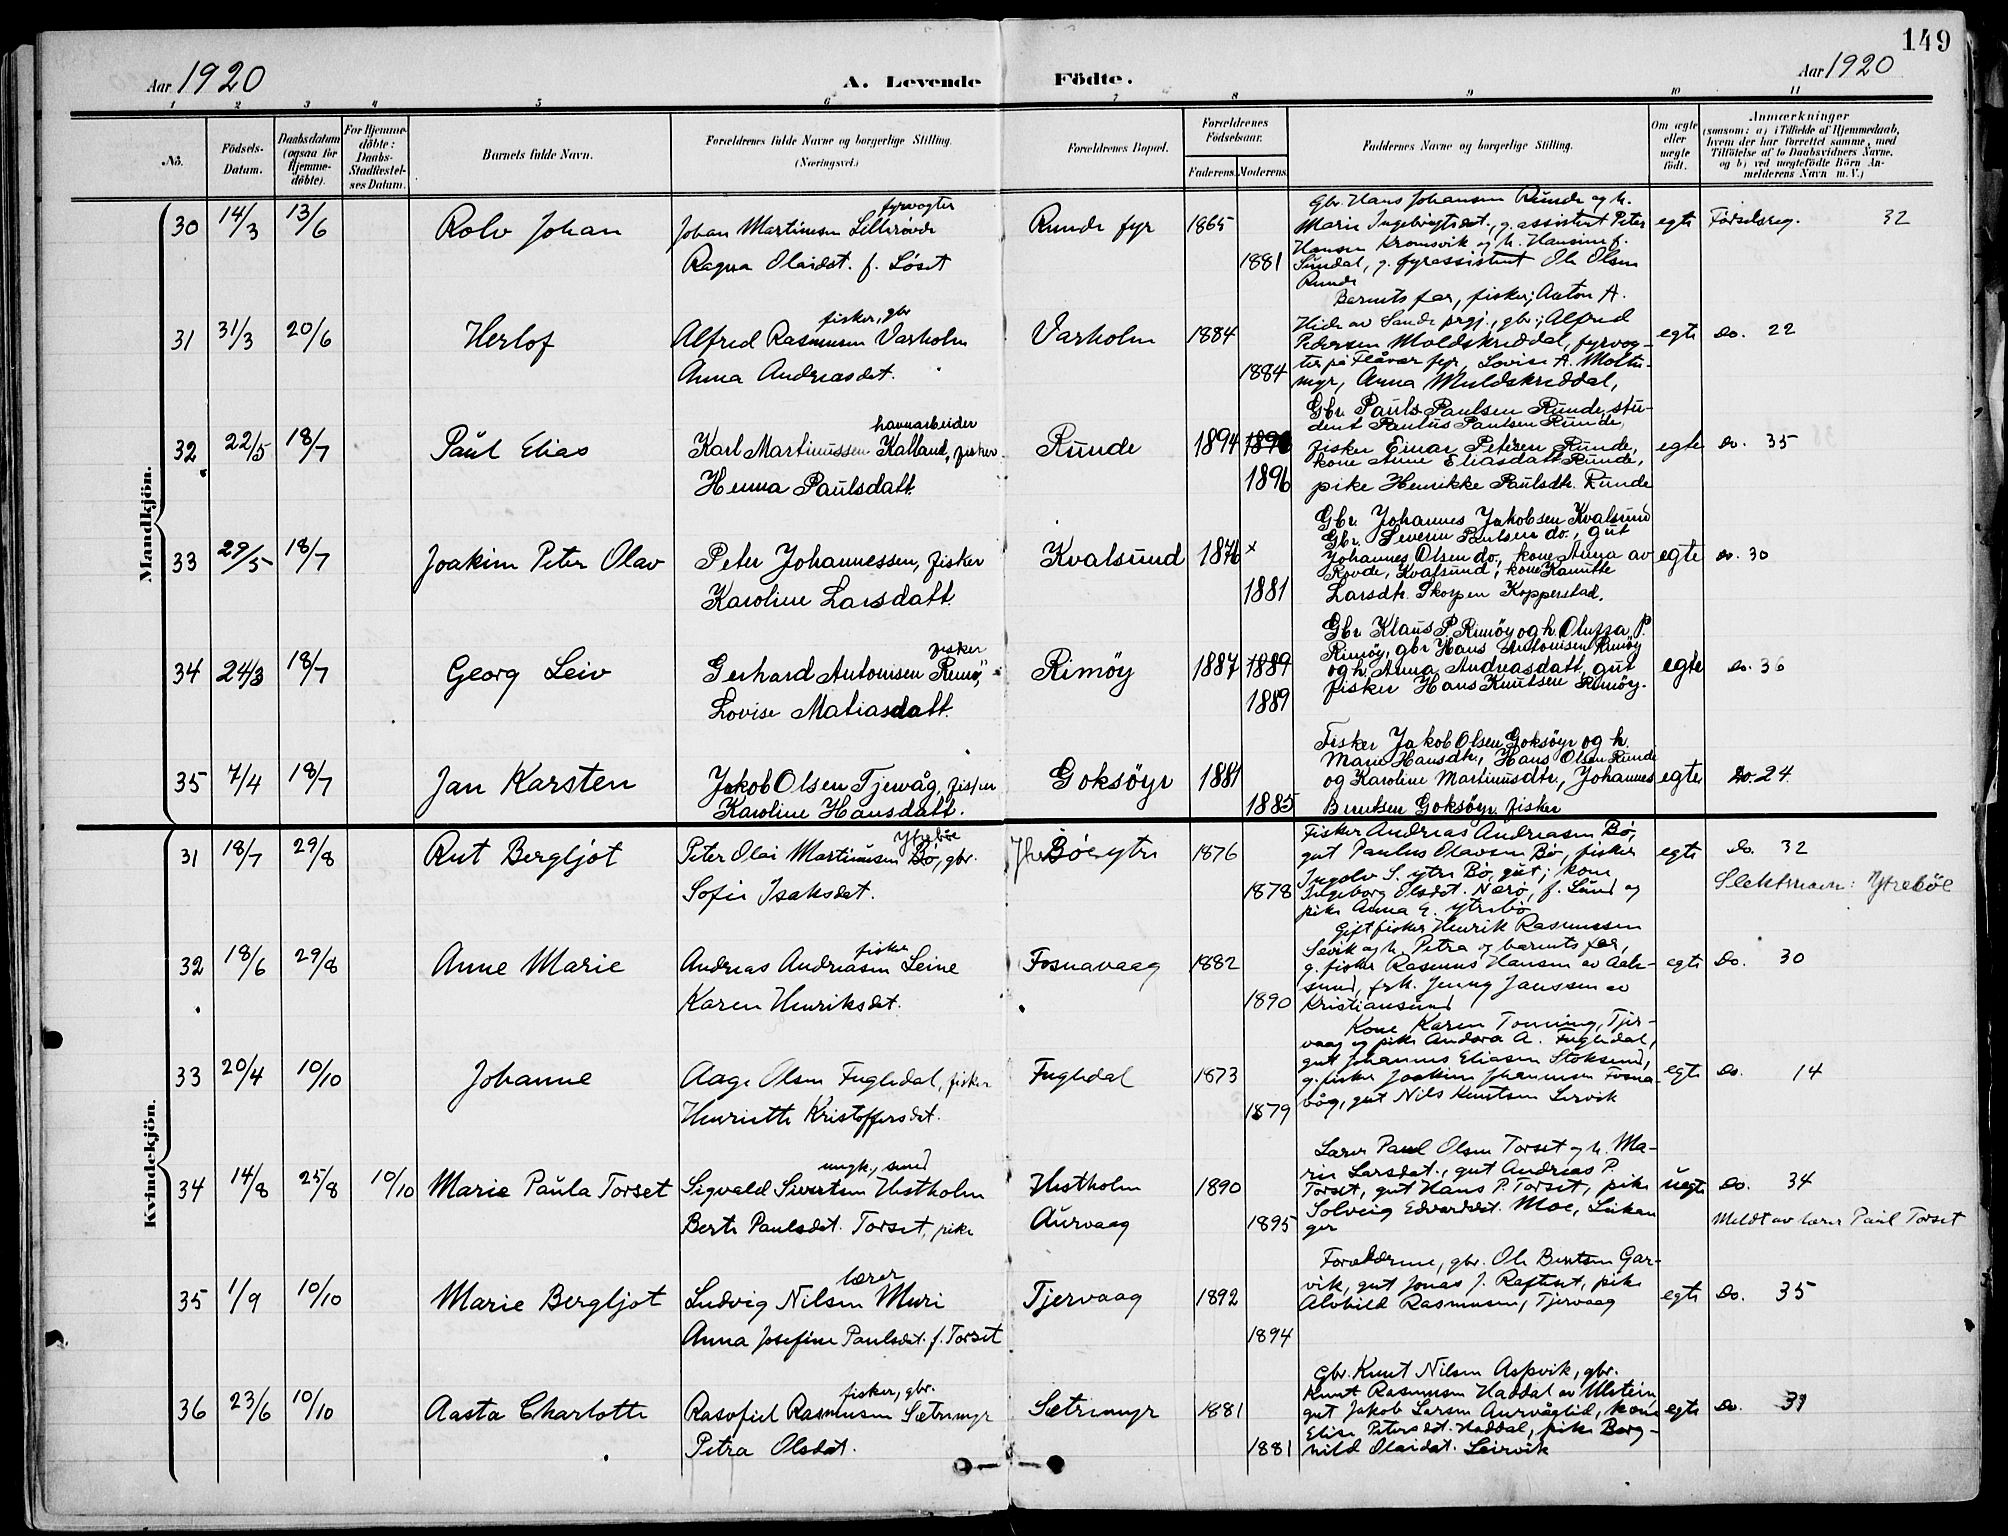 149
Aar 1920
A. Levende Födte.
Aar 1920
1 2 3 4 5 6 7 8 9 10 11
No.
Födsels-
Datum.
Daabsdatum
(ogsaa for
Hjemme-
döbte).
For Hjemme-
döbte:
Daabs-
Stadfæstel-
ses Datum.
Barnets fulde Navn.
Forældrenes fulde Navne og borgerlige Stilling.
(Næringsvei.)
Forældrenes Bopæl.
Forældrenes
Födselsaar.
Faderens. Moderens.
Faddernes Navne og borgerlige Stilling.
Om ægte
eller
uægte
født.
Anmærkninger
(saasom: a) i Tilfælde af Hjemmedaab,
hvem der har forrettet samme, med
Tilföielse af to Daabsvidners Navne,
og b) ved uægtefödte Börn An-
melderens Navn m. V.)
Mandkjön.
30 14/3 13/6 Rolv Johan
fyrvogter
Johan Martinsen Lillerøvde
Ragna Olaidst. f. Løset
Runde fyr 1865
1881
Gbr. Hans Johansen Runde og h.
Marie Ingebrigtsdt., g. assistent Peter
Hansen Kromsvik og h. Hansine f.
Sundal, g. fyrassistent Ole Olsen
Runde
egte Fødselsreg. 32
31 31/3 20/6 Herlof
fisker, gbr
Alfred Rasmusen Varholm
Anna Andreasdet.
Varholm 1884
1884
Barnets far, fisker; Anton A.
Hide av Sande prgj., gbr.; Alfred
Pedersen Moldskreddal, fyrvog-
ter på Flåvær fyr, Lovise A. Moltu-
myr, Anna Muldskreddal,
egte do. 22
32 22/5 18/7 Paul Elias
havnarbeider
Karl Martinussen Kalland, fisker
Henna Paulsdatt.
Runde 1894 1890
1896
Gbr. Pauls Paulsen Runde, stu-
dent Paulus Paulsen Runde,
fisker Einar Petersen Runde,
kone Anne Eliasdatt Runde,
pike Henrikke Paulsdtr. Runde
egte do. 35
33 29/5 18/7 Joakim Peter Olav
Peter Johannessen, fisker
Karoline Larsdatt.
Kvalsund 1876 x
1881
Gbr. Johannes Jakobsen Kvalsund
Gbr. Severin Paulsen do., gut
Johannes Olsen do., kone Anna av
Rovde, Kvalsund; kone Kanutte
Larsdtr. Skorpen Kopperstad.
egte do. 30
34 24/3 18/7 Georg Leiv
fisker
Gerhard Antonisen Rimöy
Lovise Matiasdatt.
Rimöy 1887 1889
1889
Gbr Klaus P. Rimöy og h. Oluffa P.
Rimöy, gbr Hans Antonisen Rimöy
og h. Anna Andreasdatt., gut
fisker Hans Knutsen Rimöy.
egte do. 36
35 7/4 18/7 Jan Karsten
Jakob Olsen Tjervåg, fisker
Karoline Hansdatt.
Goksöyr 1881
1885
Fisker Jakob Olsen Goksöyr og h.
Marie Hansdtr., Hans Olsen Runde
og Karoline Martinusdtr., Johannes
Berntsen Goksöyr fisker
egte do. 24
Kvindekjön.
31 18/7 29/8 Rut Bergljot
Ytrebøe
Peter Olai Martinusen Bø, gbr.
Sofie Isaksdet.
Bøe ytre 1876
1878
Fisker Andreas Andreasen Bø,
gut Paulus Olavsen Bø, fisker
Ingolv S. ytre Bø, gut; kone
Ingeborg Olsdet. Nærø, f. Lund og
pike Anna E. ytrebø
egte do. 32
Slektsnavn: Ytrebøe
32 18/6 29/8 Anne Marie
fisker
Andreas Andreasen Leine
Karen Henriksdet.
Fosnavaag 1882
1890
Gift fisker Henrik Rasmussen
Sævik og h. Petra og barnets far,
g. fisker Rasmus Hansen av Aale-
sund, frk. Jenny Janssen av
Kristiansund
egte do. 30
33 20/4 10/10 Johanne
Aage Olsen Fugledal, fisker
Henriette Kristoffersdet.
Fugledal 1873
1879
Kone Karen Tonning, Tjer-
vaag og pike Andora A. Fugledal,
gut Johannes Eliasen Stoksund,
g. fisker Joakim Johannesen Fosna-
våg, gut Nils Knutsen Lervik
egte do. 14
34 14/8 25/8 10/10 Marie Paula Torset
ungk., smed
Sigvald Sivertsen Hestholm
Berte Paulsdet. Torset, pike
Hestholm
Aurvaag
1890
1895
Lærer Paul Olsen Torset og h. Ma-
rie Larsdat., gut Andreas P.
Torset, gut Hans P. Torset, pike
Solveig Edvardsdt. Moe, Leikan
ger
uegte do. 34
Meldt av lærer Paul Torset
35 1/9 10/10 Marie Bergljot
lærer
Ludvig Nilsen Muri
Anna Josefine Paulsdet. f. Torset
Tjervaag 1892
1894
Forældrene, gbr. Ole Bentsen Gar-
vik, gut Jonas J. Raftset, pike
Alvhild Rasmusen, Tjervaag
egte do. 35
36 23/6 10/10 Aasta Charlotte
fisker, gbr.
Rasofiel Rasmusen Sætremyr
Petra Olsdet.
Sætremyr 1881
1881
Gbr. Knut Nilsen Aspvik, gbr.
Knut Rasmusen Haddal av Ulstein,
gut Jakob Larsen Aurvåglid, kone
Elise Petersdt. Haddal, pike Borg-
hild Olaidat. Leirvik
egte do. 31